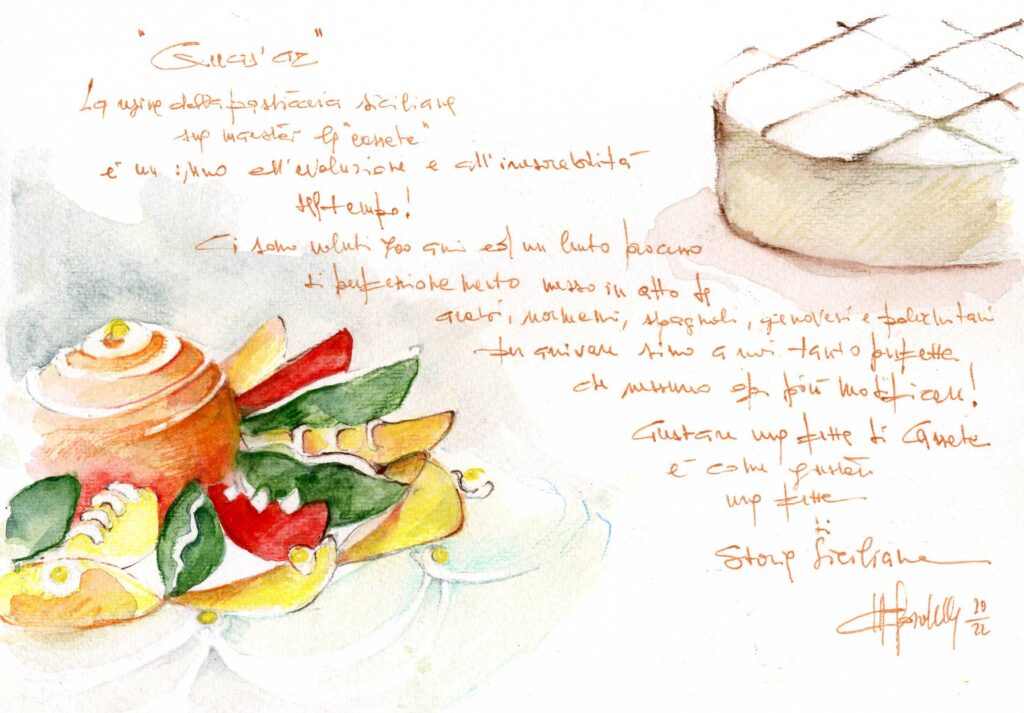 "Quas'at"
La regine della pasticceria siciliana
sua maestà la "cassata"
è un inno all'evoluzione e all'inesorabilità
del tempo!
Ci sono voluti 700 anni ed un lento processo
di perfezionamento messo in atto da
arabi, normanni, spagnoli, genovesi e palermitani
per arrivare sino a noi tanto perfetta
che nessuno osa più modificare!
Gustare una fetta di Cassata
è come gustare
una fetta
di
Storia Siciliana
20
22